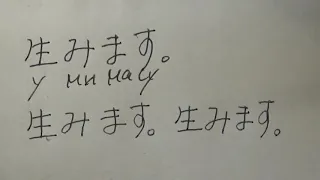 生みます。
у ми масу
生みます。生みます。